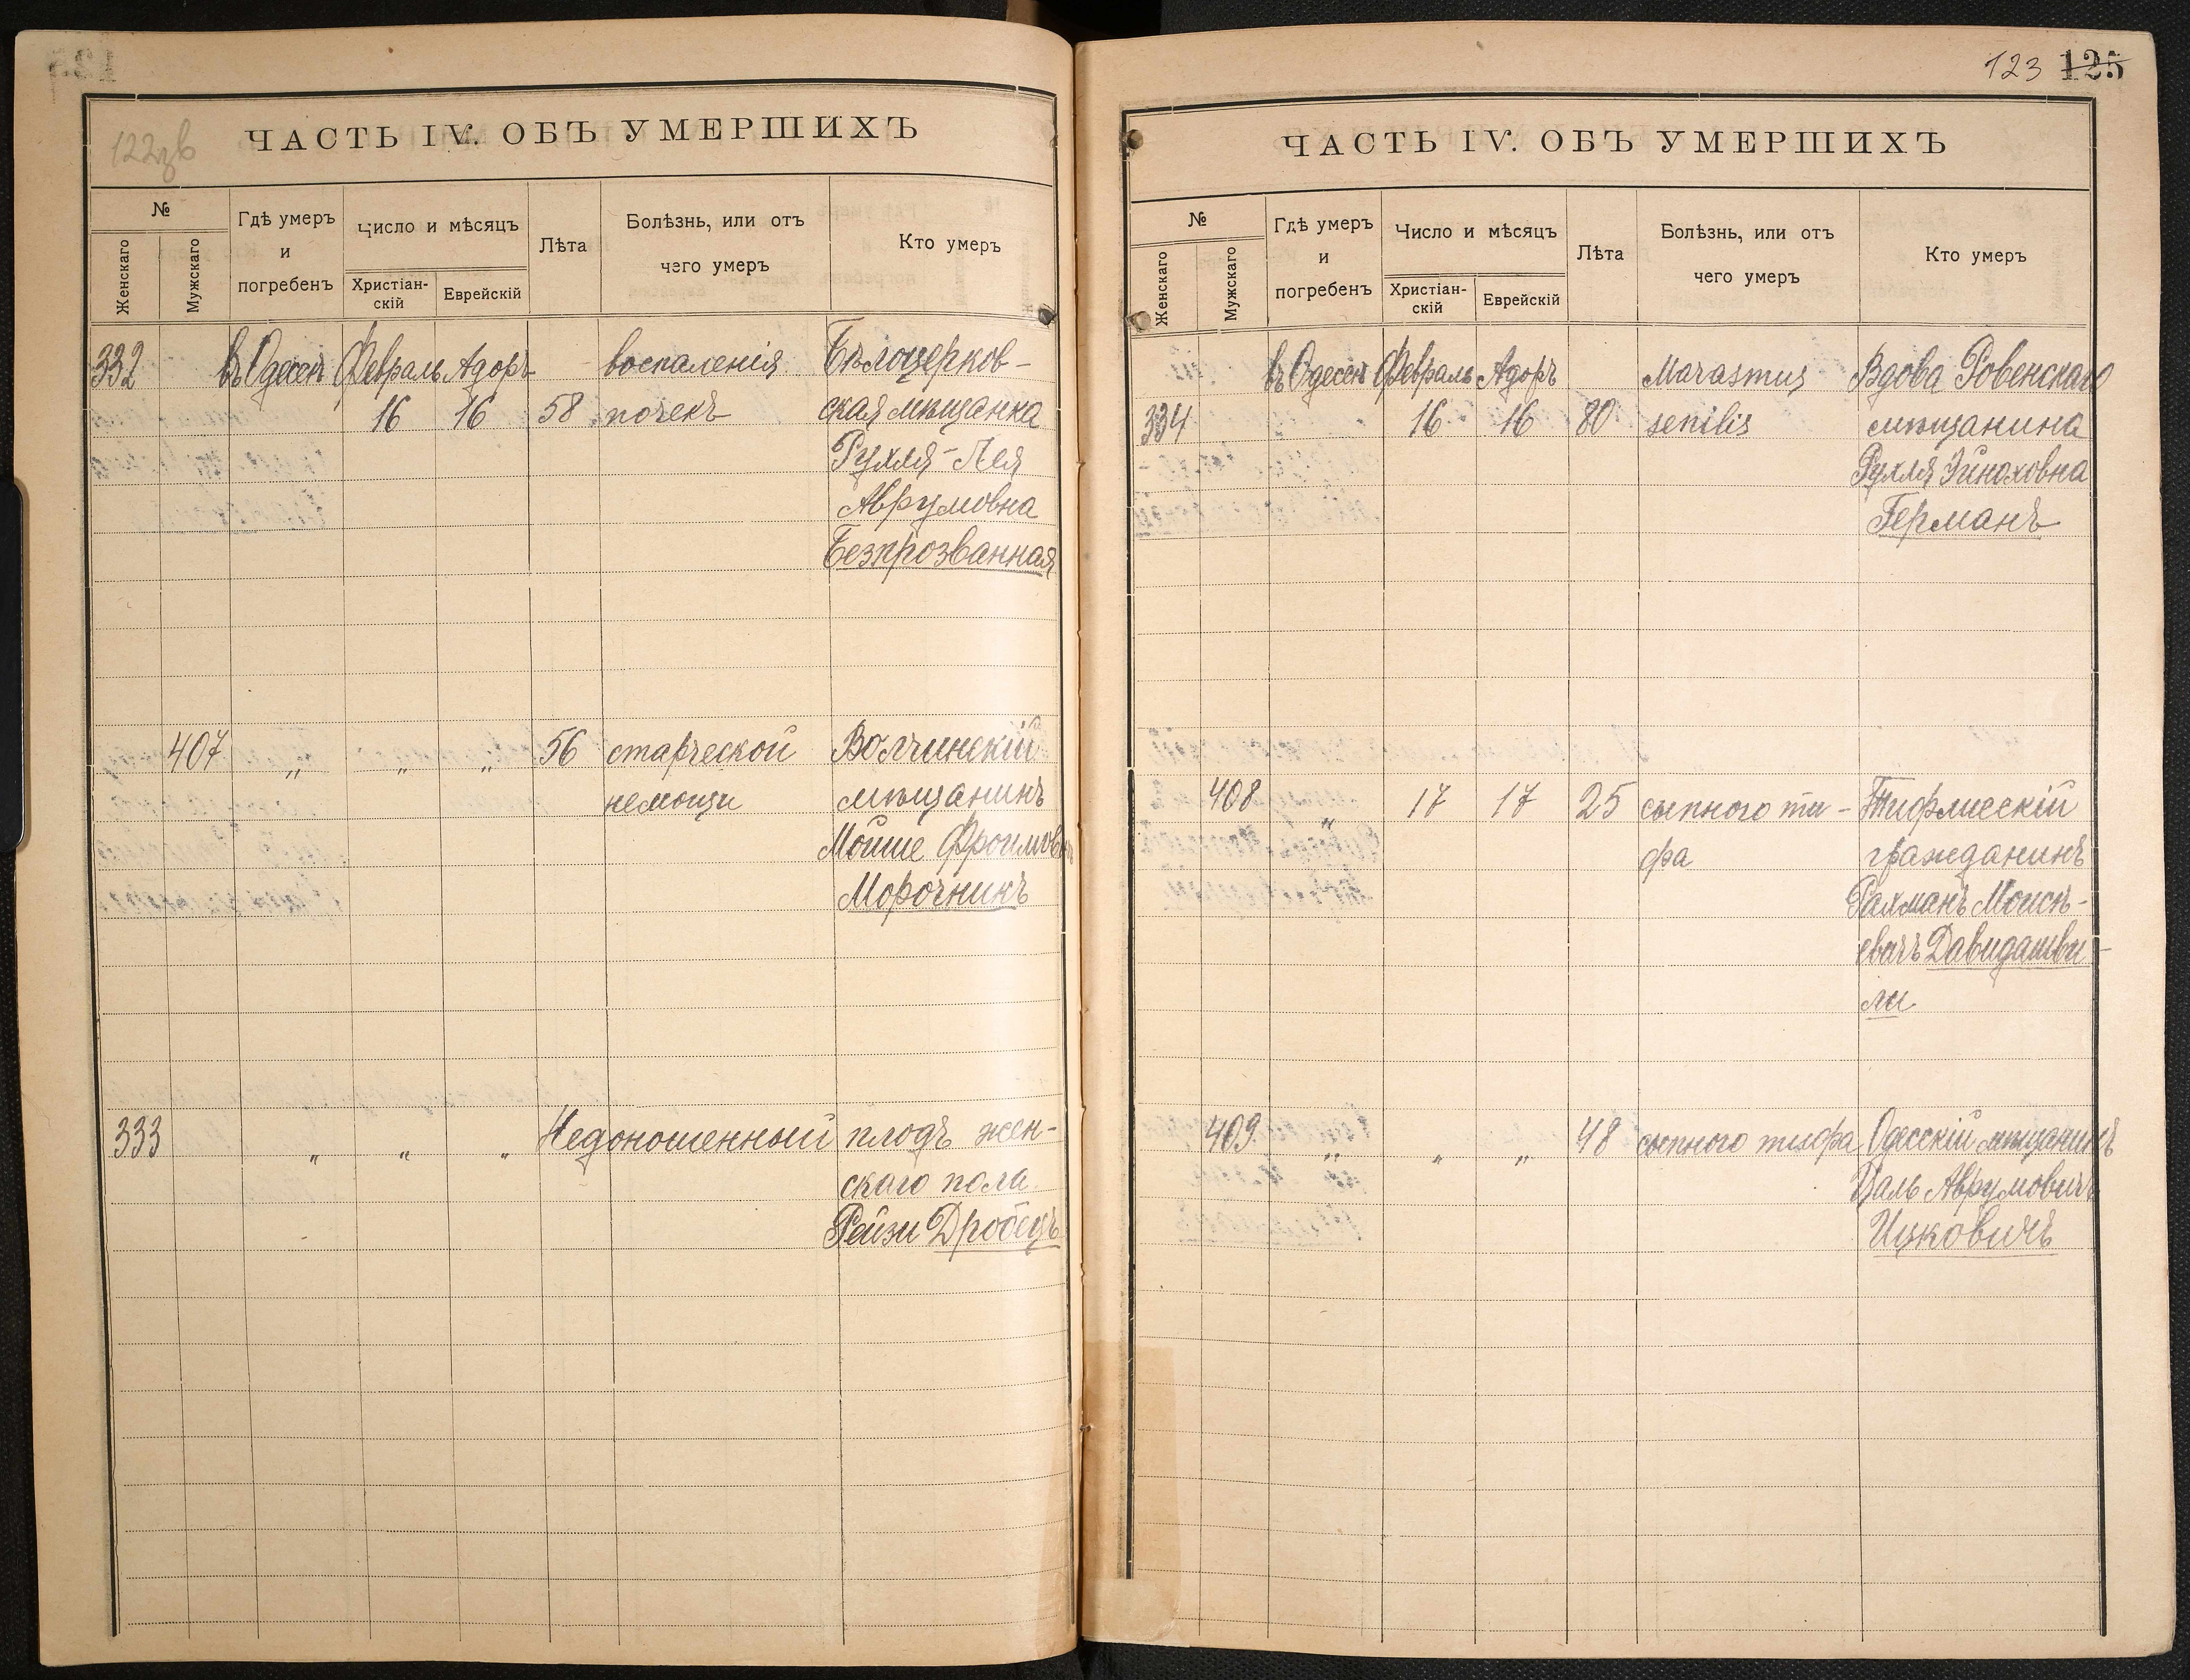 122зв
ЧАСТЬ IV. ОБЪ УМЕРШИХЪ
№
Женскаго
Мужскаго
Гдѣ умеръ
и
погребенъ
Число и мѣсяцъ
Христіан-
скій
Еврейскій
Лѣта
Болѣзнь, или отъ
чего умеръ
Кто умеръ
332 въ Одессѣ Февраль Адоръ воспаленія Бѣлоцерков-
16 16 58 почекъ ская мѣщанка
Рухля-Лея
Аврумовна
Безпрозванная
407 „ „ „ 56 старческой Волчинскій
немощи мѣщанинъ
Мойше Фроимовъ
Морочникъ
333 „ „ „ Недоношенный плодъ жен-
скаго пола
Рейзи Дробецъ
123 125
ЧАСТЬ IV. ОБЪ УМЕРШИХЪ
№
Женскаго
Мужскаго
Гдѣ умеръ
и
погребенъ
Число и мѣсяцъ
Христіан-
скій
Еврейскій
Лѣта
Болѣзнь, или отъ
чего умеръ
Кто умеръ
въ Одессѣ Февраль Адоръ Marasmus Вдова Ровенскаго
334 16 16 80 senilis мѣщанина
Рухля Эйноховна
Германъ
408 „ 17 17 25 сыпного ти- Тифлисскій
фа гражданинъ
Рахманъ Моисѣ-
евичъ Давидашви-
ли
409 „ „ „ 48 сыпного тифа Одесскій мѣщанинъ
Цаль Аврумовичъ
Ицковичъ